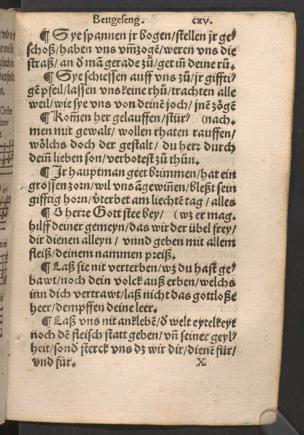 Bettgeseng. cxv.
¶ Sye spannen jr bogen/stellen jr ge⸗
schoß/haben vns vmzogē/weren vns die
straß/an dʼ mā gerade zů/get in deine rů.
¶ Sye schiessen auff vns zů/jr giffti⸗
gē pfeil/lassen vns keine rhů/trachten alle
weil/wie sye vns von deinē joch/jnē zögē
¶ Komēn her gelauffen/stür (nach.
men mit gewalt/wollen rhaten rauffen/
wölchs doch der gestalt/du herr durch
dein lieben son/verbotest zů thůn.
¶ Jr hauptman geet brimmen/hat ein
grossen zorn/wil vns agewinen/bleßt sein
gifftig horn/vterbet am liechtē tag/alles
¶ O herre Gott stee bey/ (wz er mag.
hilff deiner gemeyn/das wir der übel frey/
dir dienen alleyn/vnnd geben mit allem
fleiß/deinem nammen preiß.
¶ Laß sie nit verterben/wz du hast ge⸗
bawt/noch dein volck auß erben/welchs
inn dich vertrawt/laß nicht das gottloße
heer/dempffen deine leer.
¶ Laß vns nit anklebē/dʼ welt eytelkeyt
noch dē fleisch statt geben/vn̄ seiner geyl⸗
heit/sondʼ sterck vns dz wir dir/dienē für/
vnd für. X